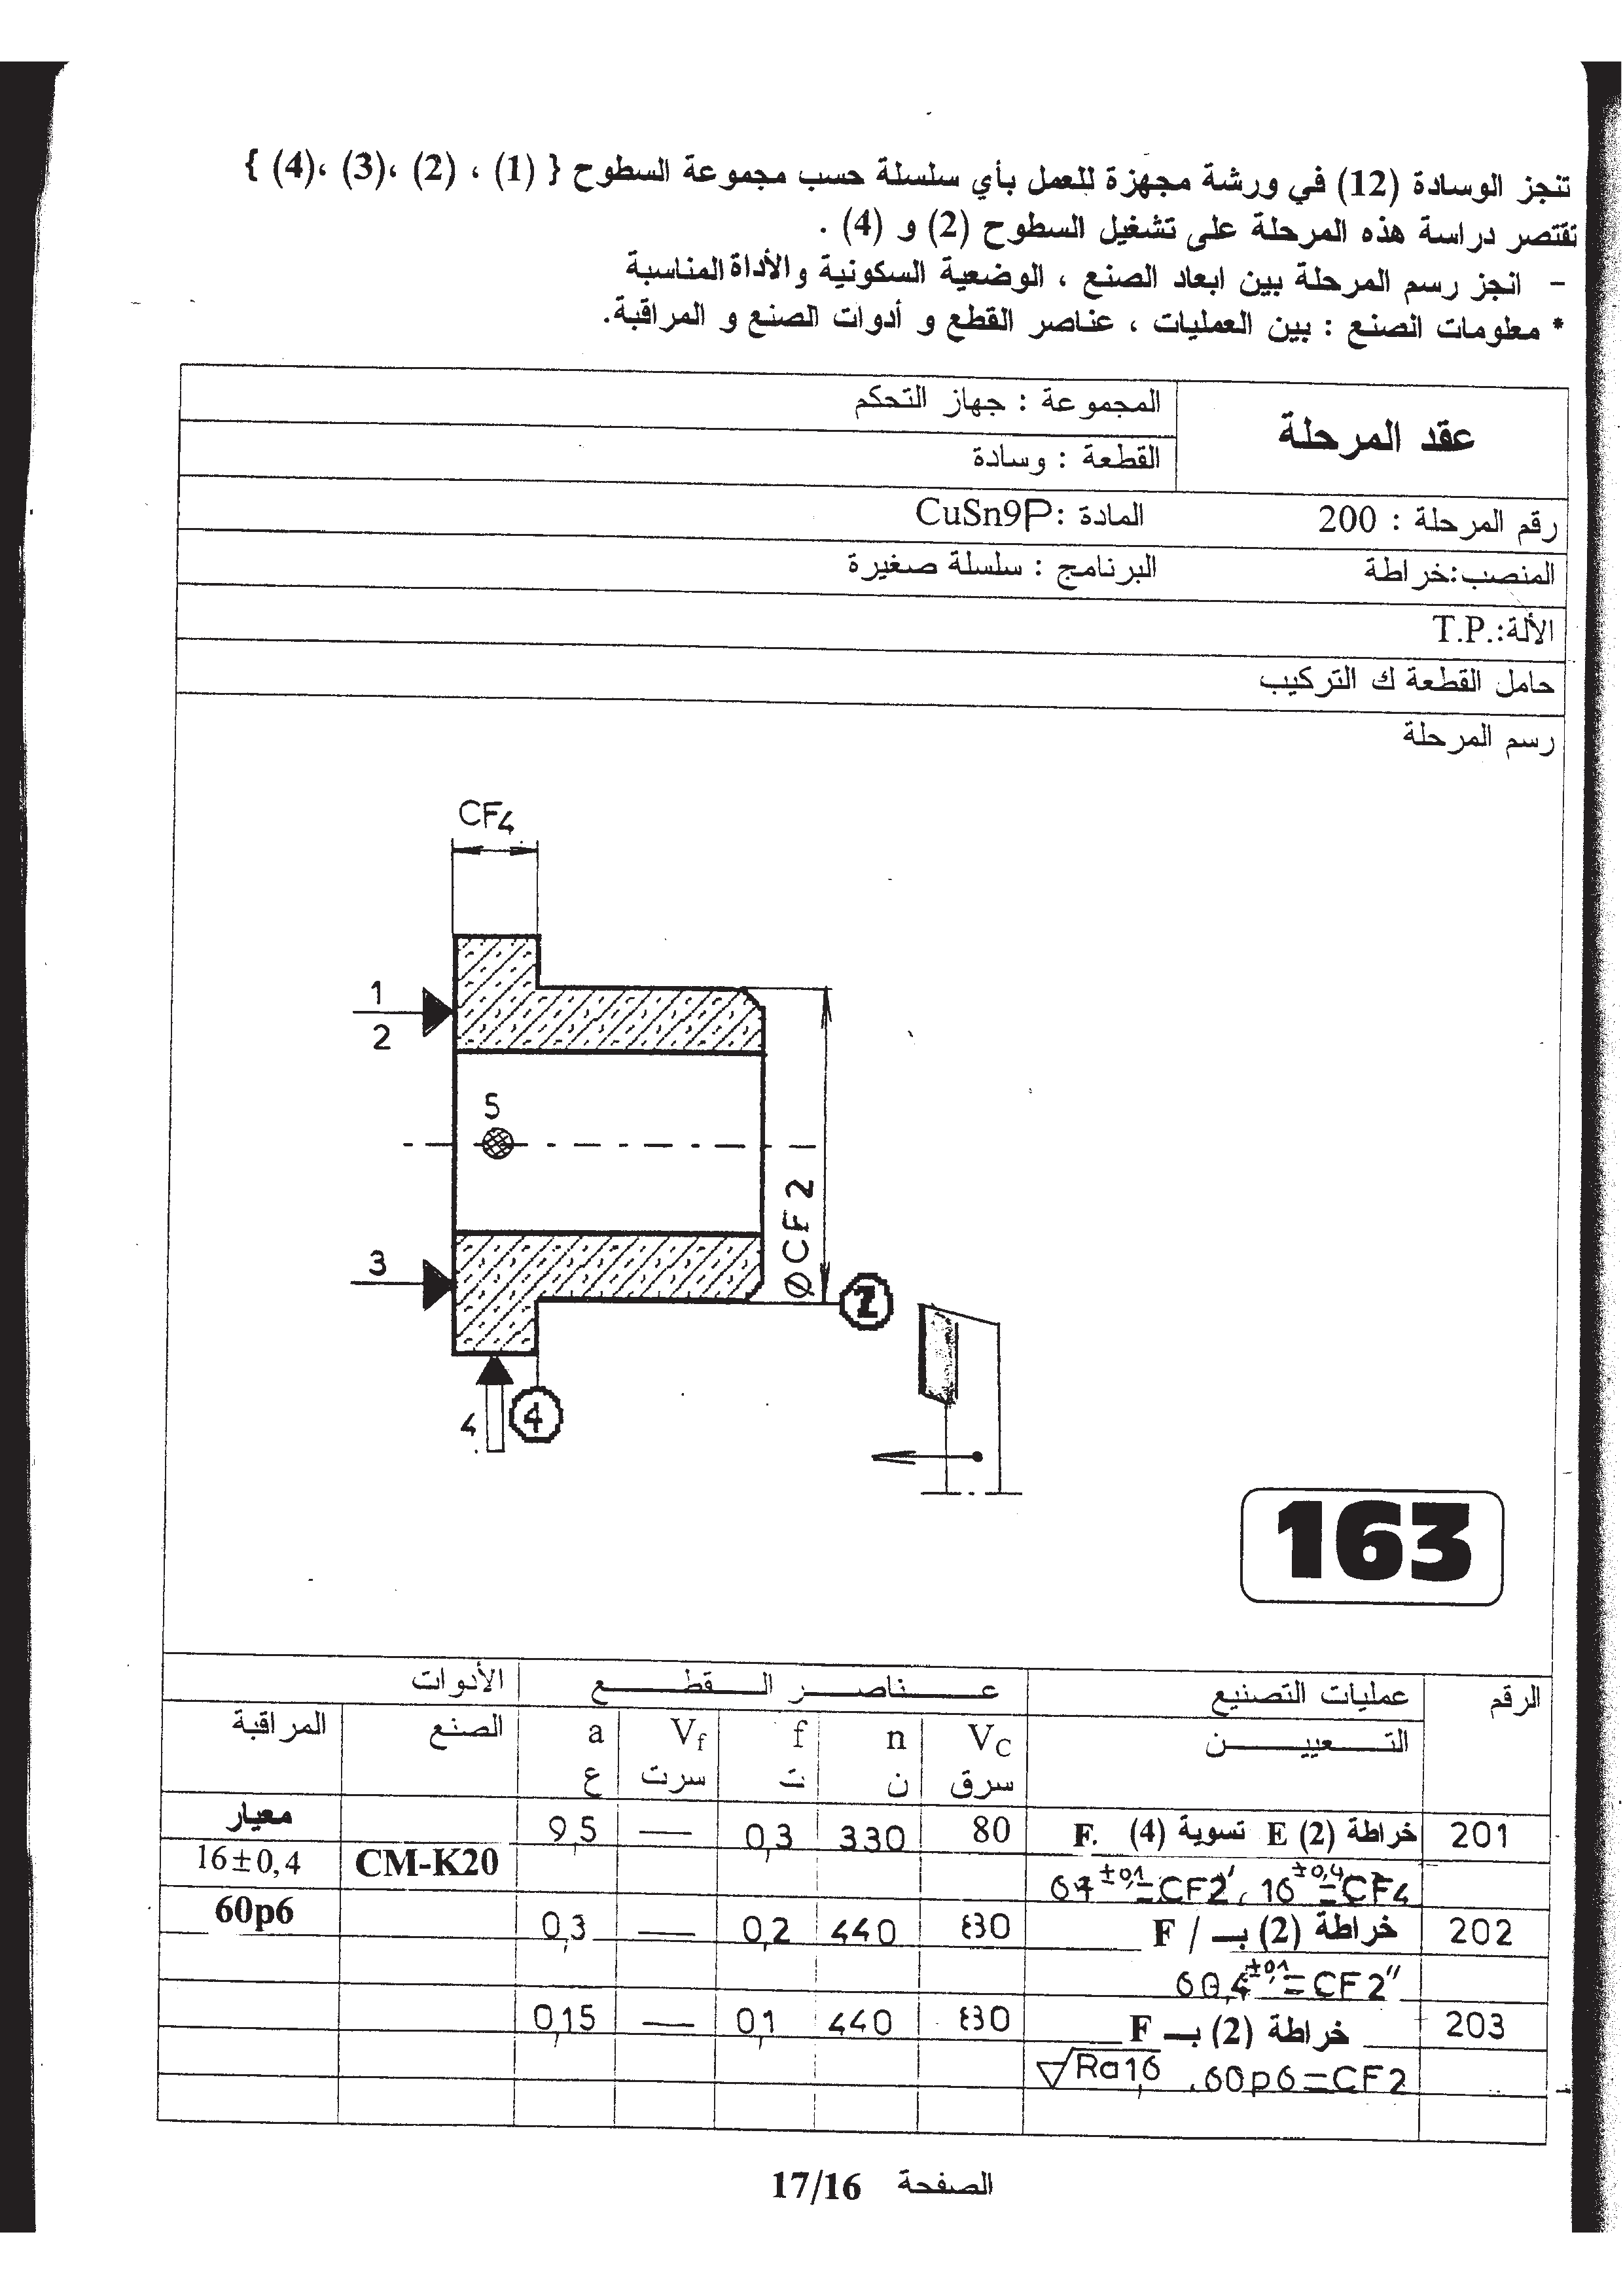 تنجز الوسادة (12) في ورشة مجهزة للعمل بأي سلسلة حسب مجموعة السطوح { (1) ، (2) ،(3) ،(4) }
تقتصر دراسة هذه المرحلة على تشغيل السطوح (2) و (4) .
- انجز رسم المرحلة بين ابعاد الصنع ، الوضعية السكونية والأداة المناسبة
* معلومات الصنع : بين العمليات ، عناصر القطع و أدوات الصنع و المراقبة.
عقد المرحلة
المجموعة : جهاز التحكم
القطعة : وسادة
رقم المرحلة : 200 المادة :CuSn9P
المنصب:خراطة البرنامج : سلسلة صغيرة
الألة:.T.P
حامل القطعة ك التركيب
رسم المرحلة
CF4
1
2
5
3
ØCF2
2
4
4
163
الرقم عمليات التصنيع عـناصـر الـقطـع الأدوات
التـعييـن VC n f Vf a الصنع المراقبة
سرق ن ت سرت ع
201 خراطة (2) E تسوية (4) F. 80 330 0,3 — 9,5 معيار
CF4=16±0,4 ، CF2'=61±0,1 CM-K20 16±0,4
202 خراطة (2) بـ / F 430 440 0,2 — 0,3 60p6
CF2"=60,4±0,1
203 خراطة (2) بـ F 430 440 0,1 — 0,15
CF2=60p6 . Ra1,6
الصفحة 17/16